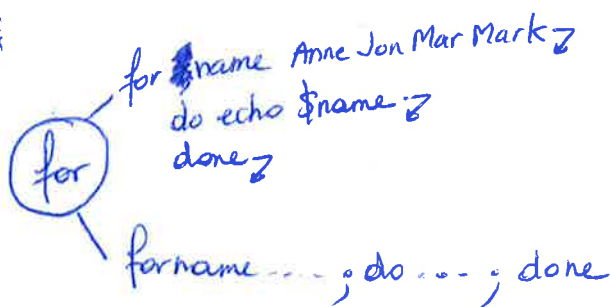 for name Anne Jon Mar Mark
do echo $name.
done
for
forname ....; do ...; done